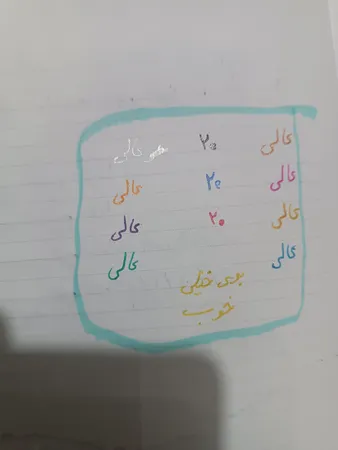 عالی ۲۰ عالی
عالی ۲۰ عالی
عالی ۲۰ عالی
عالی عالی
خیلی
خوب